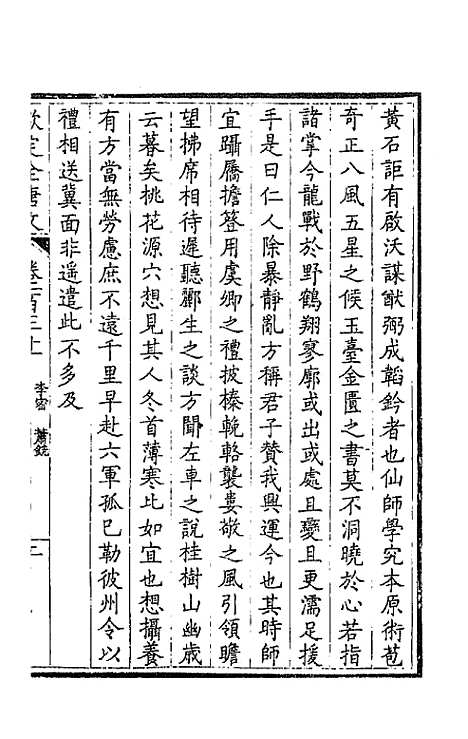 黃石詎有啟沃謀猷弼成韜鈐者也仙師學究本原術苞
奇正八風五星之候玉臺金匱之書莫不洞曉於心若指
諸掌今龍戰於野鶴翔寥廓或出或處且變且更濡足援
手是曰仁人除暴靜亂方稱君子贊我興運今也其時師
宜躡屩擔簦用虞卿之禮披榛輓輅襲婁敬之風引領瞻
望拂席相待遲聽酈生之談方聞左車之說桂樹山幽歲
云暮矣桃花源穴想見其人冬首薄寒比如宜也想攝養
有方當無勞慮庶不遠千里早赴六軍孤已勒彼州令以
禮相送冀面非遙遣此不多及
欽定全唐文 卷一百三十 李密 蕭銑